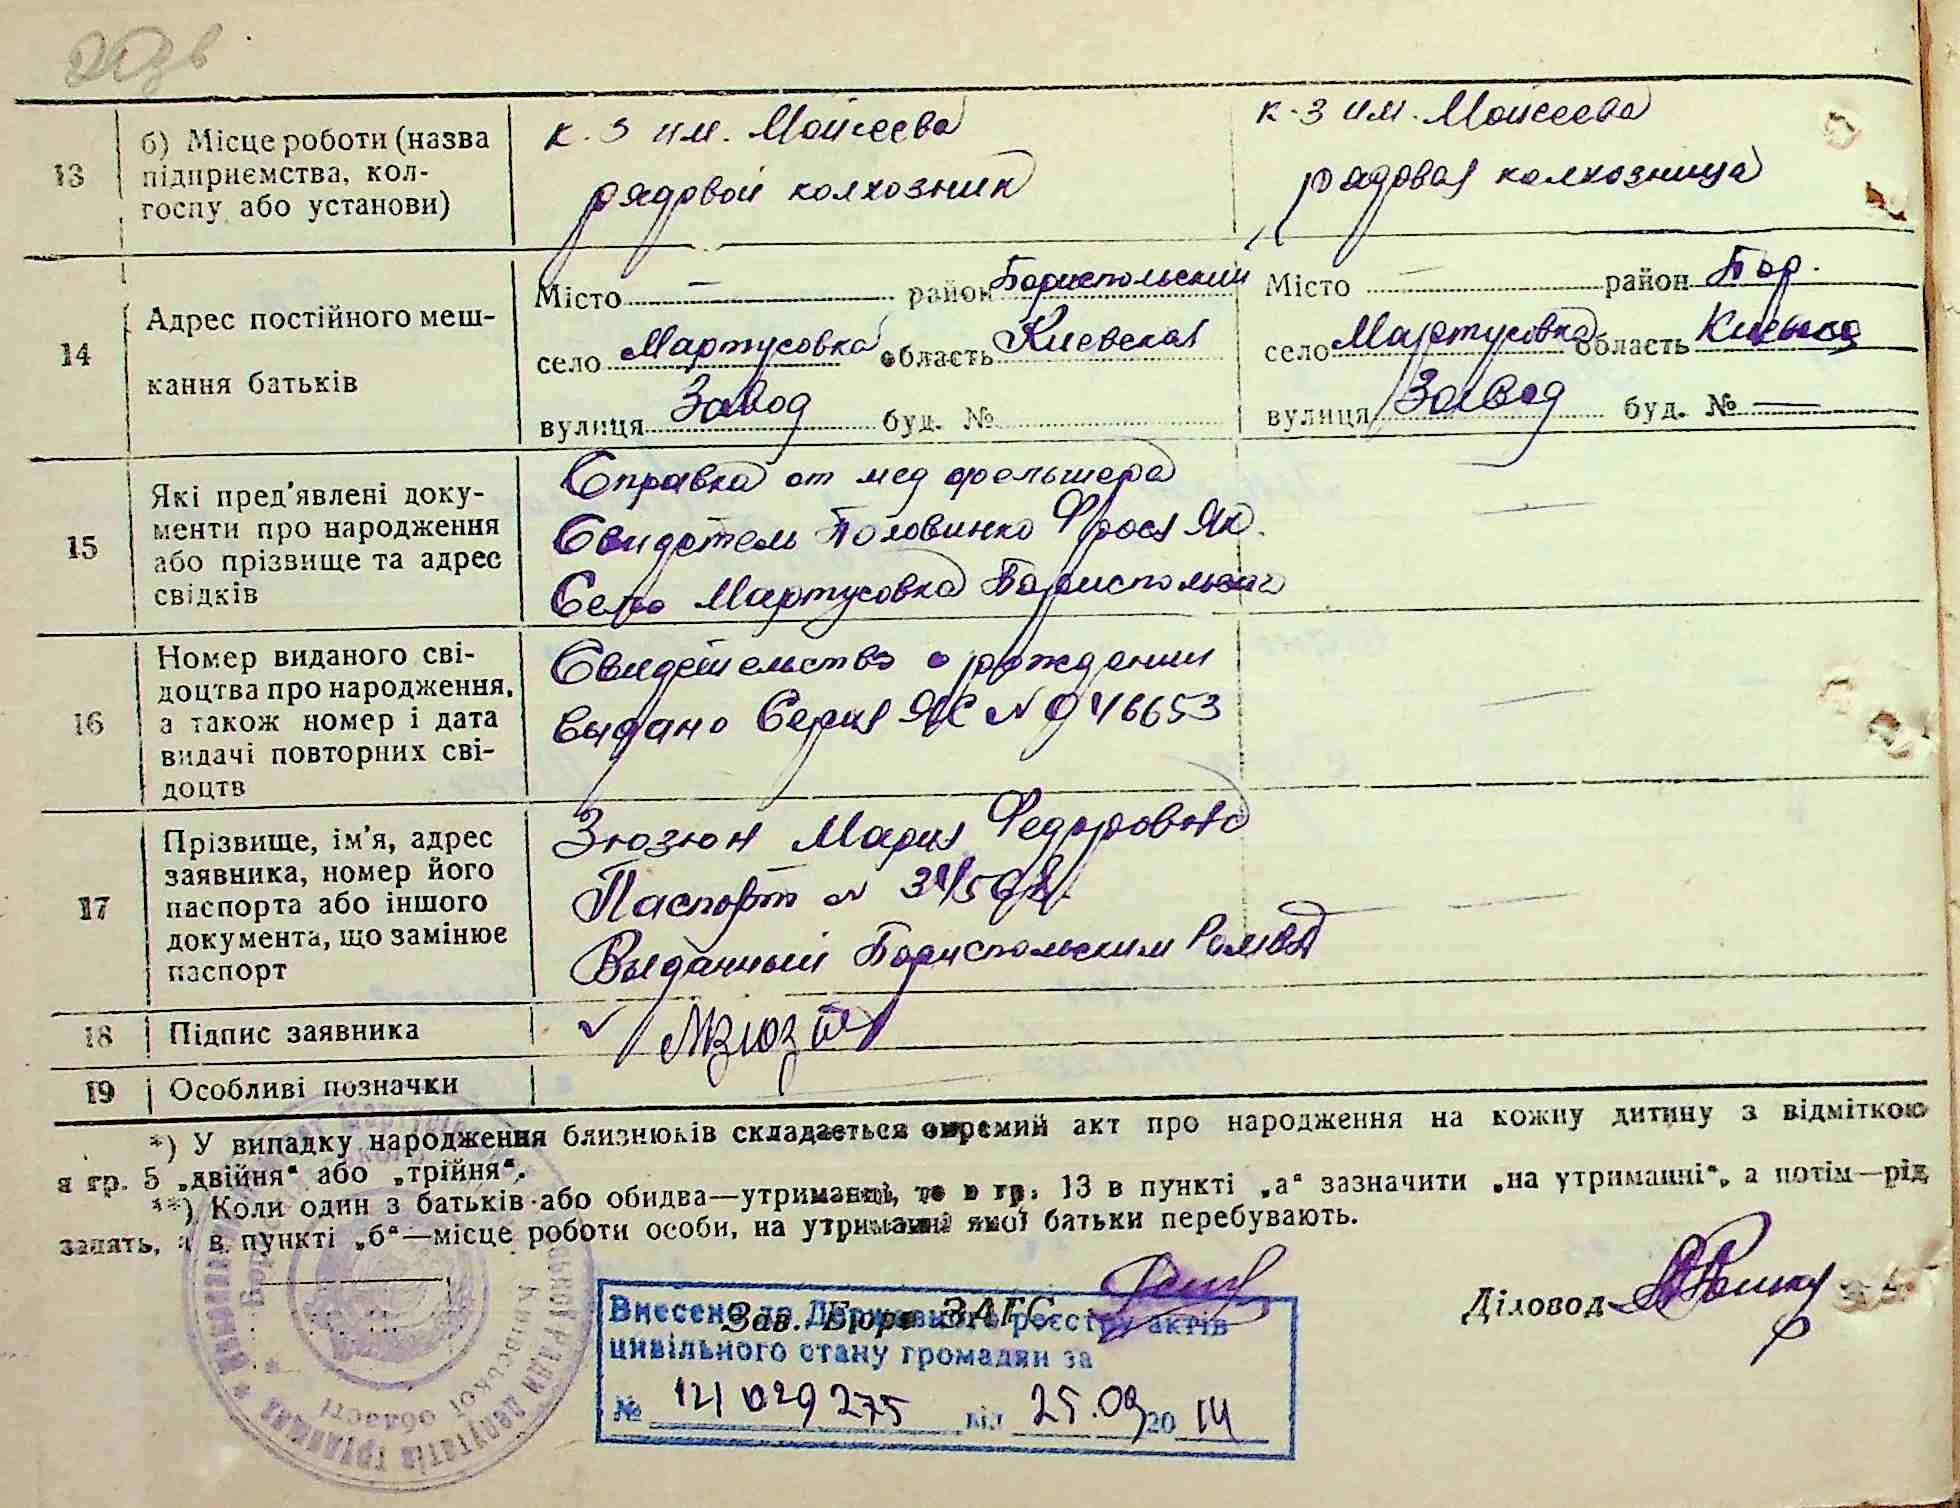 203в
13
б) Місце роботи (назва
підприємства, кол-
госпу або установи)
к-з им. Моисеева
рядовой колхозник
к-з им. Моисеева
рядовая колхозница
14
Адрес постійного меш-
кання батьків
Місто — район Бориспольский
село Мартусовка область Киевская
вулиця Завод буд. №
Місто — район Бор.
село Мартусовка область
вулиця Завод буд. № —
15
Які пред'явлені доку-
менти про народження
або прізвище та адрес
свідків
Справка от мед фельшера
Свидетель Половинко Фрося Як.
Село Мартусовка
—
16
Номер виданого сві-
доцтва про народження,
а також номер і дата
видачі повторних сві-
доцтв
Свидетельство о рождении
выдано Серия ЯС № 946653
—
17
Прізвище, ім'я, адрес
заявника, номер його
паспорта або іншого
документа, що замінює
паспорт
Зюзюн Мария Федоровна
Паспорт №
Выданный Бориспольским
—
18
Підпис заявника
✓ МЗюзюн
19
Особливі позначки
*) У випадку народження близнюків складається окремий акт про народження на кожну дитину з відміткою
в гр. 5 „двійня" або „трійня".
**) Коли один з батьків або обидва—утриманці, то в гр. 13 в пункті „а" зазначити „на утриманні", а потім—рід
занять, а в пункті „б"—місце роботи особи, на утриманні якої батьки перебувають.
Зав. Бюро ЗАГС
Діловод
Внесено до Державного реєстру актів
цивільного стану громадян за
№ 121029275 від 25.09 2014
Київської області